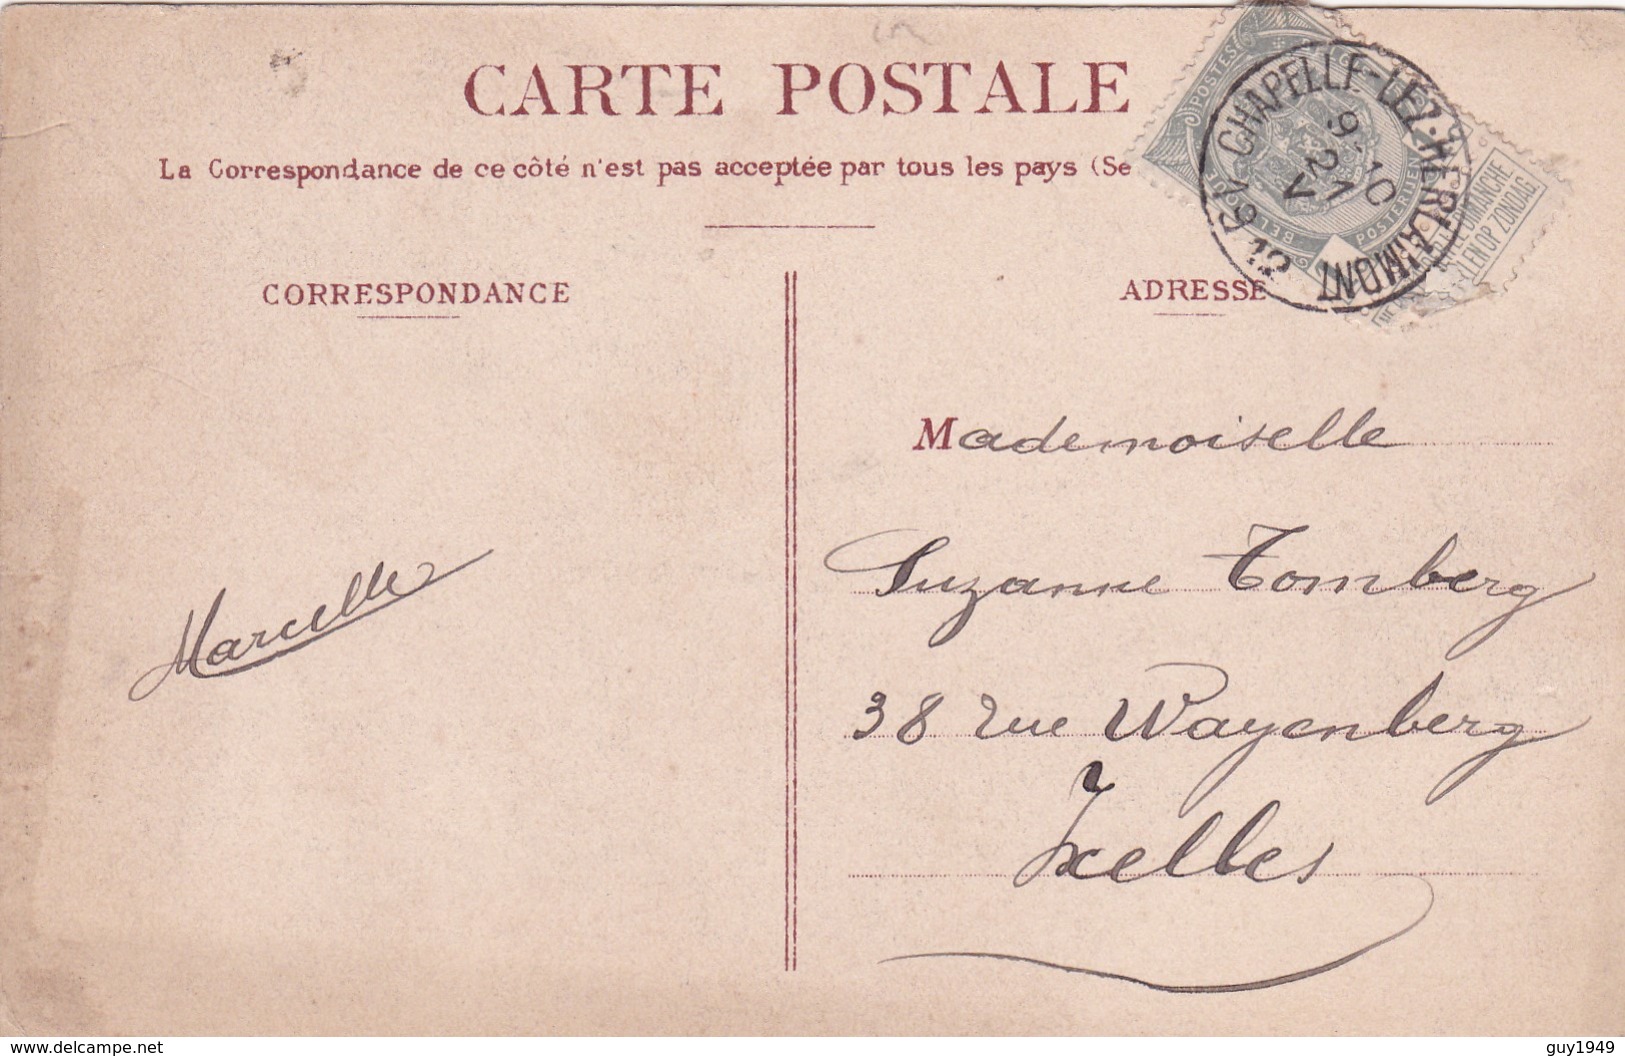 CARTE POSTALE
La Correspondance de ce côté n'est pas acceptée par tous les pays (Se
CORRESPONDANCE
ADRESSE
POSTES
POSTERIJEN
CHAPELLE-LEZ-HERLAIMONT
9-10
21
V
19
DIMANCHE
OP ZONDAG
Mademoiselle
Suzanne Tomberg
38 rue Wayenberg
Ixelles
Marcelle
www.delcampe.net
guy1949